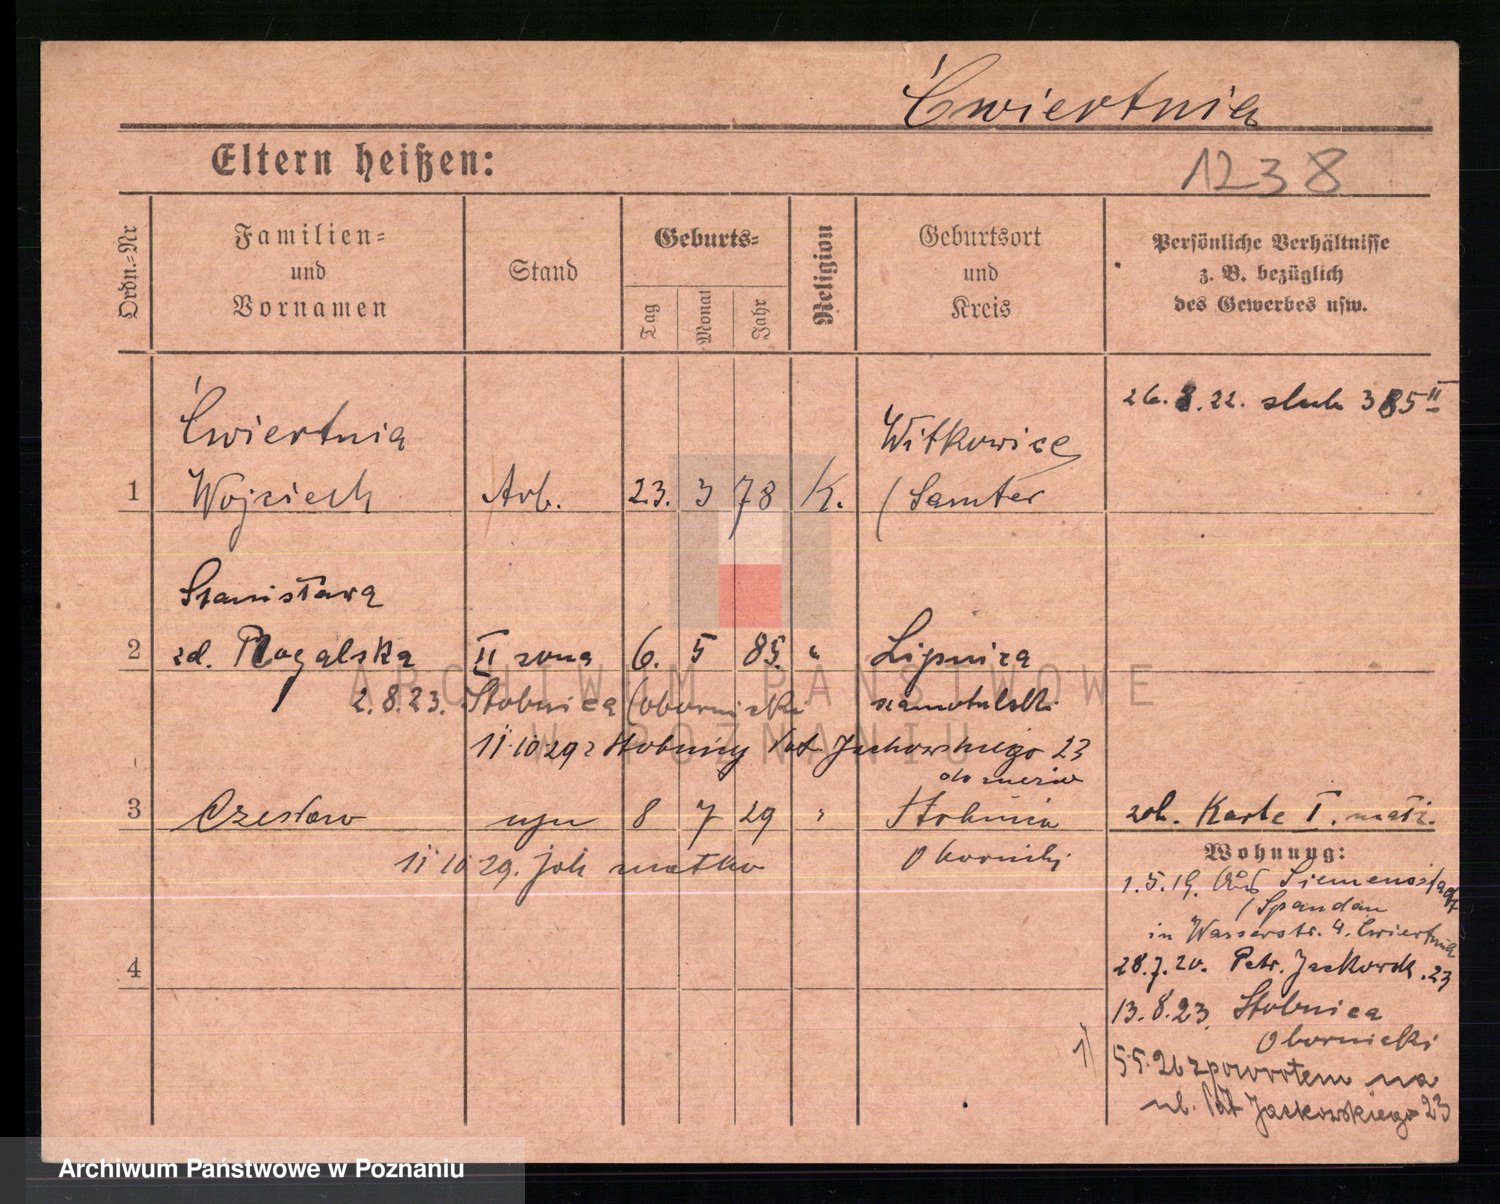 Ćwiertnia
Eltern heißen:
1238
Ordn.-Nr
Familien-
und
Vornamen
Stand
Geburts-
Tag
Monat
Jahr
Religion
Geburtsort
und
Kreis
Persönliche Verhältnisse
z. B. bezüglich
des Gewerbes usw.
26. 8. 22. slub 385 II
Ćwiertnia
Witkowice
1 Wojciech Arb. 23. 3 78 K. (Samter
Stanisława
2 zd. Rogalska II zona 6. 5 85. " Lipnica
2.8.23. Stobnica (obornicki szamotulski
11.10 29 z Stobnicy Pat. Jackowskiego 23
do męża
3 Czesław syn 8 7 29 " Stobnica zob. Karte I. małż.
11 10 29. jak matka Obornicki
Wohnung:
1.5.19. Siemensstadt
/ Spandau
in Wasserstr. 4. Ćwiertnia
4
28.7.20. Patr. Jackowsk. 23
13.8.23. Stobnica
Obornicki
1) 5.5.26 z powrotem na
ul. Pat Jackowskiego 23
ARCHIWUM PAŃSTWOWE
W POZNANIU
Archiwum Państwowe w Poznaniu